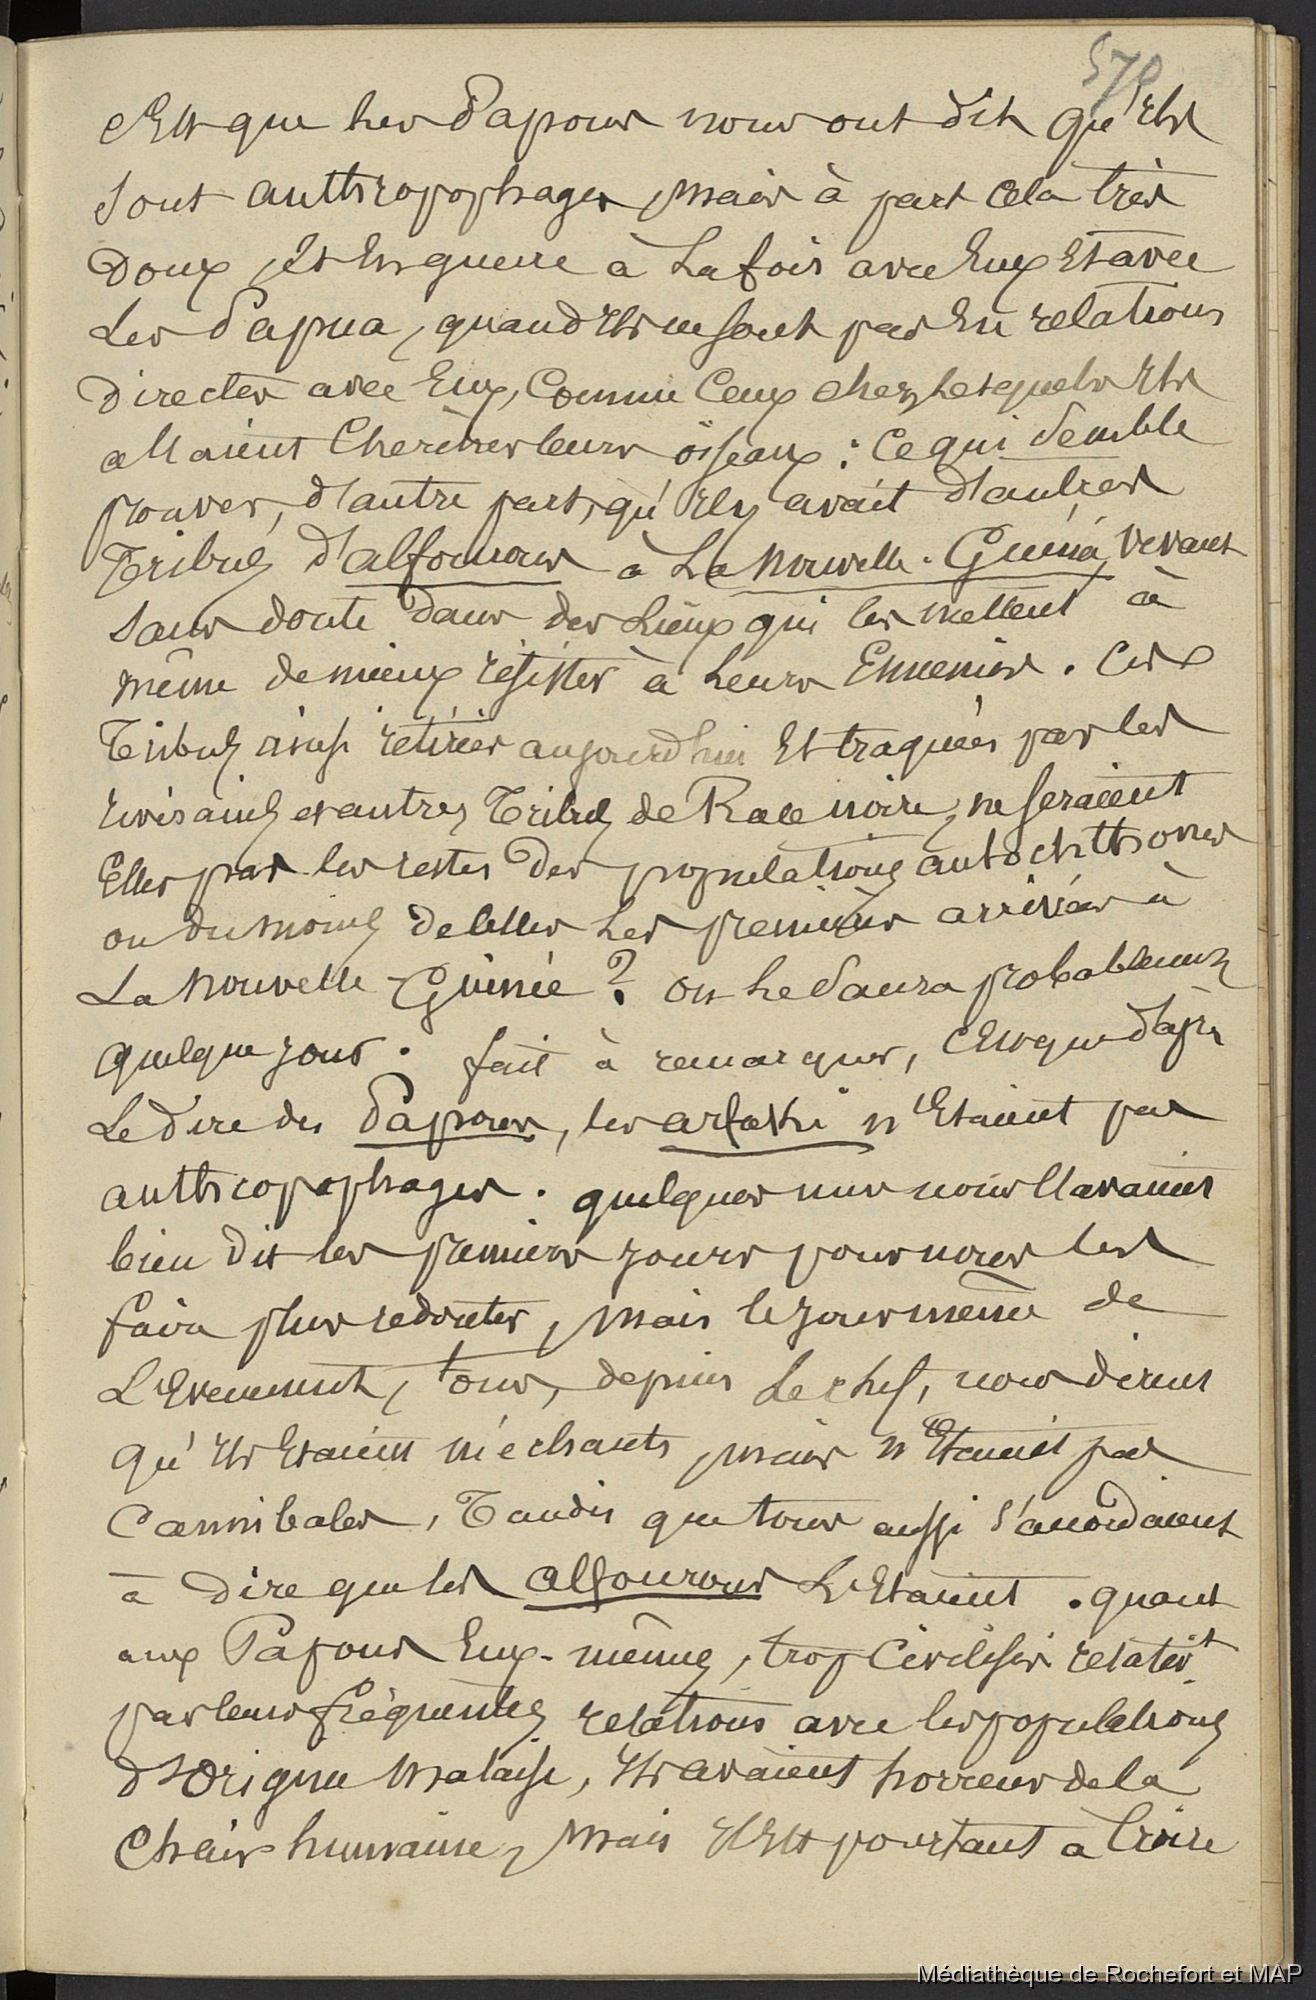 570
c'Est que Les Papous nous ont dit qu'Ils
sont anthropophages, mais à part cela très
Doux, Et En guerre à La fois avec Eux Et avec
Les Papua, quand Ils ne sont pas En relations
Directes avec Eux, Comme Ceux chez Lesquels Ils
allaient Chercher leurs oiseaux : Ce qui Semble
prouver, d'autre part, qu'Il y avait d'autres
Tribus d'alfourous à La Nouvelle-Guinée, vivant
sans doute Dans des Lieux qui les mettent à
même de mieux résister à Leurs Ennemis. Ces
Tribus ainsi retirées aujourd'hui Et traquées par les
voisines et autres Tribus de Race noire, ne seraient
Elles pas les restes Des populations autochthones
ou du moins de celles Les premières arrivées à
La Nouvelle-Guinée ? on Le Saura probablement
quelque jour. fait à remarquer, c'Est que d'après
Le Dire des Papous, les arfaki n'Etaient pas
anthropophages. quelques uns nous l'avaient
bien dit les premiers jours pour nous les
faire plus redouter, mais le jour même de
L'Evenement, tous, depuis Le chef, nous dirent
qu'Ils Etaient méchants, mais n'Etaient pas
Cannibales, Tandis que tous aussi s'accordaient
à Dire que les alfourous L'Etaient. quant
aux Papous Eux-mêmes, trop Civilisés relativt
par leurs fréquentes relations avec les populations
d'Origine Malaise, Ils avaient horreur de la
Chair humaine, mais Il Est pourtant à Croire
Médiathèque de Rochefort et MAP